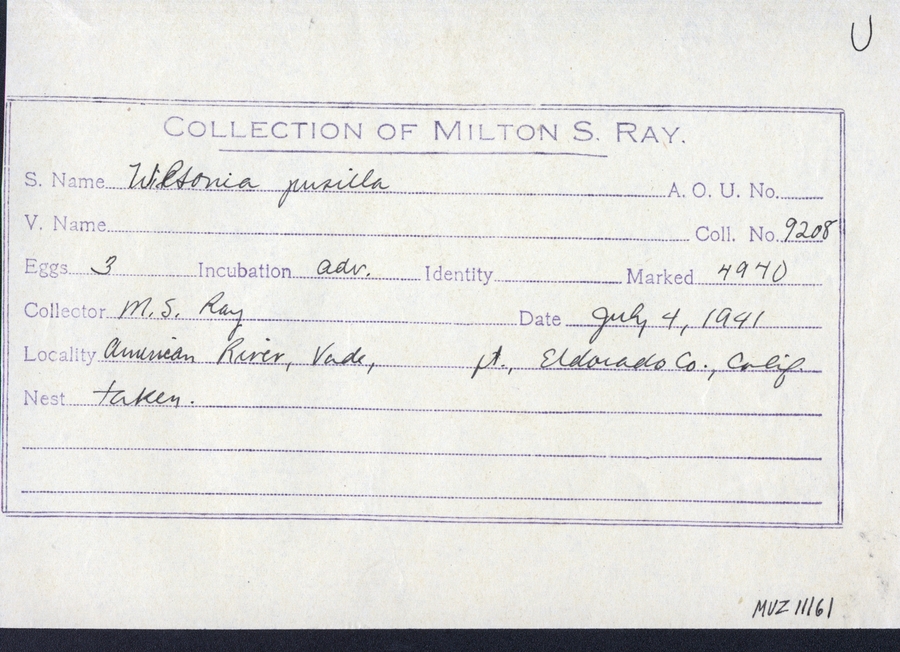 U
COLLECTION OF MILTON S. RAY.
S. Name Wilsonia pusilla A. O. U. No.
V. Name Coll. No. 9208
Eggs 3 Incubation adv. Identity Marked 4940
Collector M. S. Ray Date July 4, 1941
Locality American River, Vade, ft., Eldorado Co., Calif.
Nest taken.
MVZ 11161